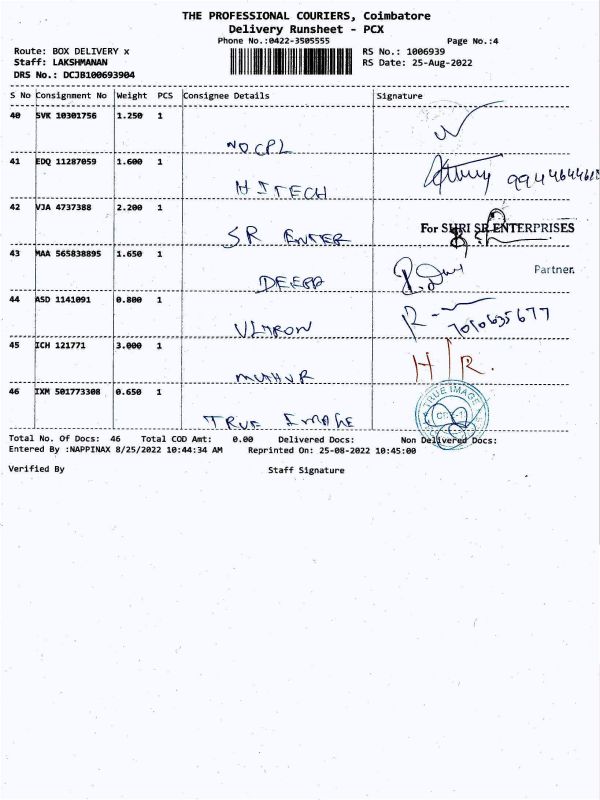 THE PROFESSIONAL COURIERS, Coimbatore
Delivery Runsheet - PCX
Phone No.:0422-3505555 Page No.:4
Route: BOX DELIVERY x RS No.: 1006939
Staff: LAKSHMANAN RS Date: 25-Aug-2022
DRS No.: DCJB100693904
S No Consignment No Weight PCS Consignee Details Signature
40 SVK 10301756 1.250 1
NDCPL
41 EDQ 11287059 1.600 1
HITECH
42 VJA 4737388 2.200 1
For SHRI SR ENTERPRISES
SR ENTER
43 MAA 565838895 1.650 1
Partner.
DEEPA
44 ASD 1141091 0.800 1
7010635677
VIMRON
45 ICH 121771 3.000 1
H R.
MUTHUR
46 IXM 501773308 0.650 1
TRUE IMAGE
TRUE IMAGE
Total No. Of Docs: 46 Total COD Amt: 0.00 Delivered Docs: Non Delivered Docs:
Entered By :NAPPINAX 8/25/2022 10:44:34 AM Reprinted On: 25-08-2022 10:45:00
Verified By Staff Signature